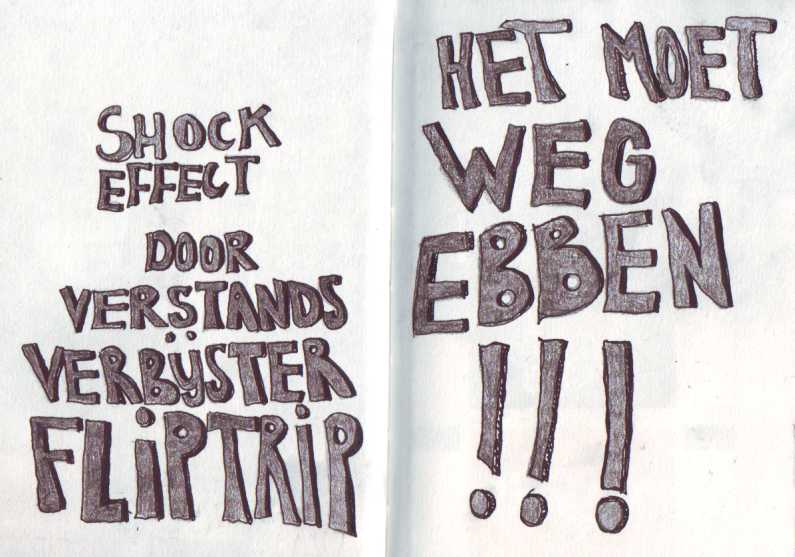 SHOCK
EFFECT
DOOR
VERSTANDS
VERBÿSTER
FLiPTRiP
HET MOET
WEG
EBBEN
!!!